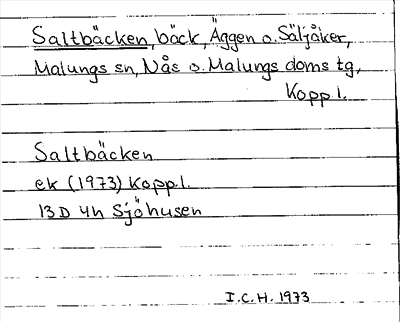 Saltbäcken, bäck, Äggen o. Säljåker,
Malungs sn, Nås o. Malungs doms tg,
Kopp l.
Saltbäcken
ek (1973) Kopp l.
13D 4h Sjöhusen
I.C.H. 1973